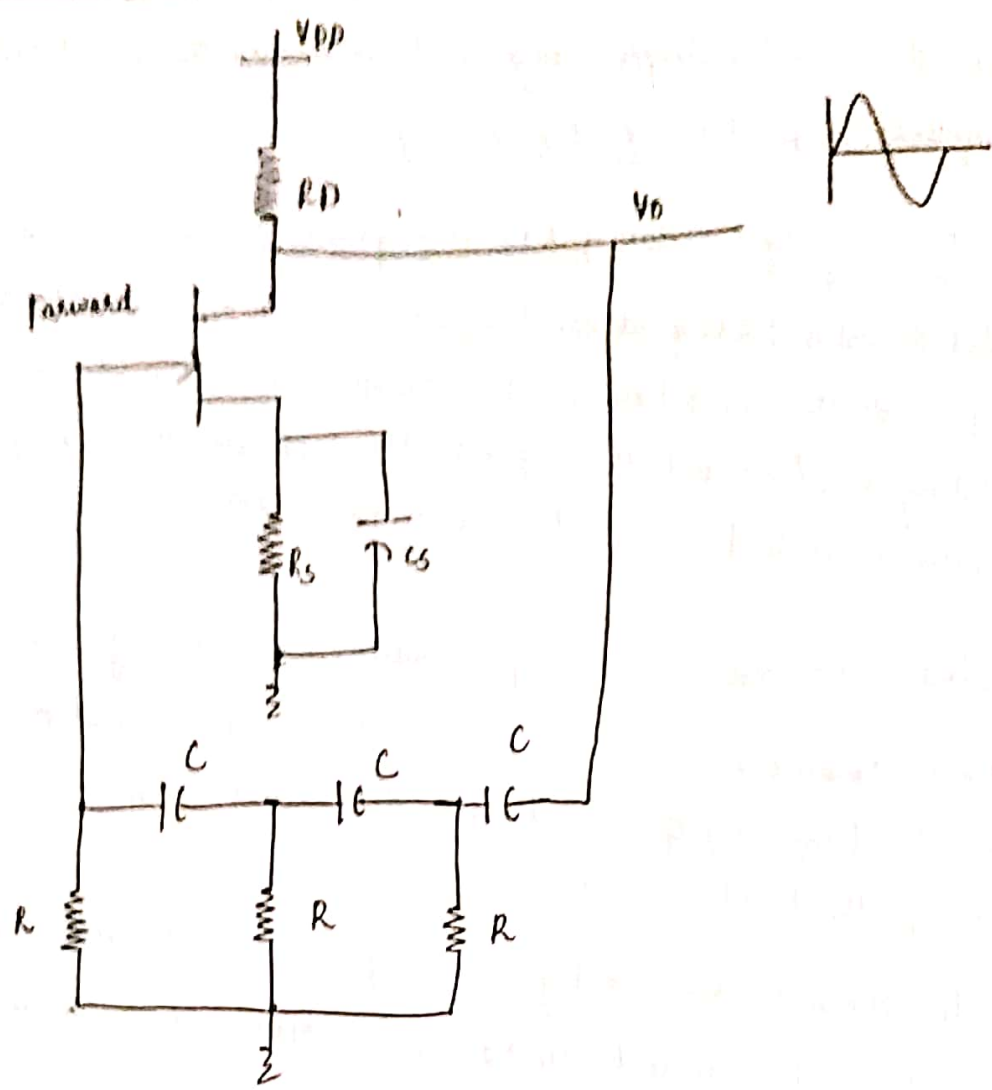 VDD
RD
VO
Forward
RS
CS
C
C
C
R
R
R